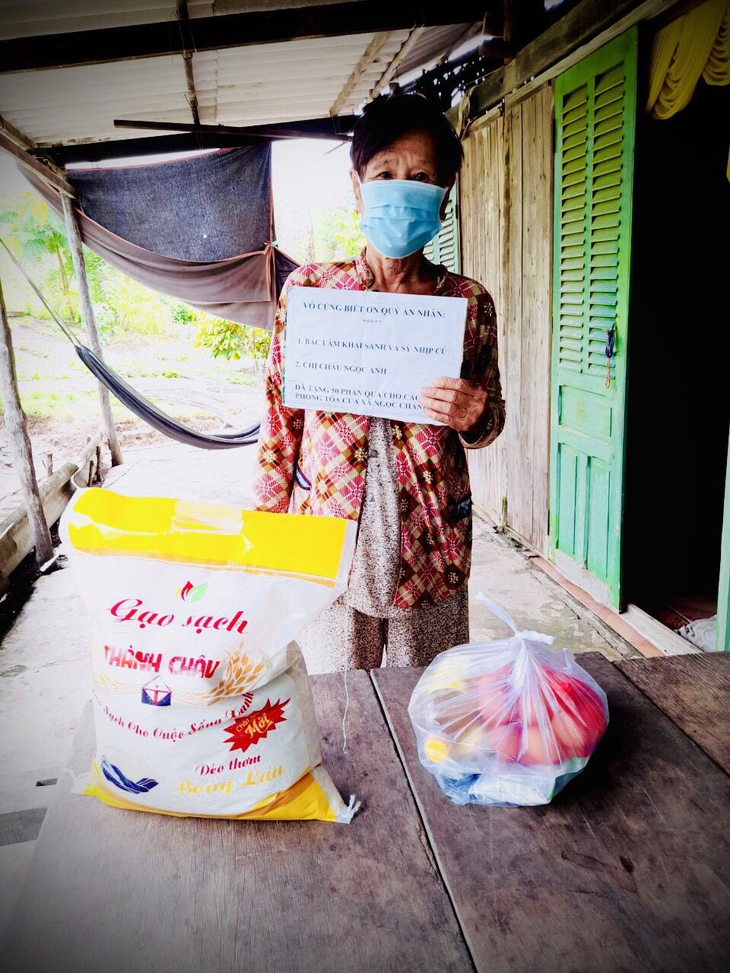 VÔ CÙNG BIẾT ƠN QUÝ ÂN NHÂN:
1. BÁC LÂM KHAI SANH VÀ SỸ NHỊP CÚ
2. CHỊ CHÂU NGỌC ANH
ĐÃ TẶNG 50 PHẦN QUÀ CHO CÁC
PHONG TỎA CỦA XÃ NGỌC CHÁNH
Gạo sạch
THÀNH CHÂU
Sạch Cho Cuộc Sống
Mới
Dẻo thơm
Bông Lau